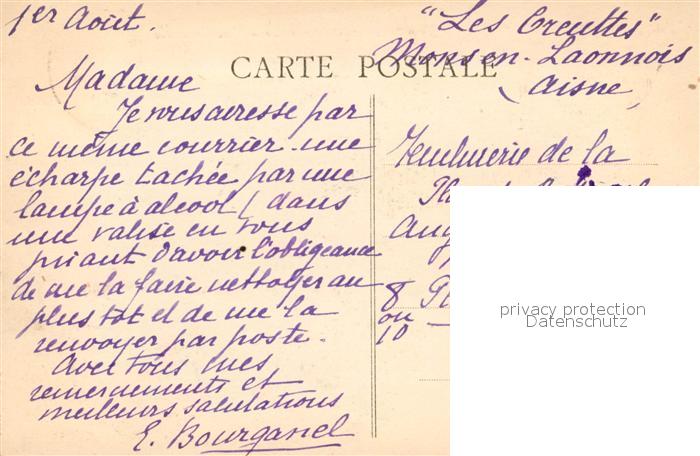 1er Août.
"Les Creuttes"
Mons en-Laonnois
(Aisne)
CARTE POSTALE
Madame
Je vous adresse par
ce même courrier une
écharpe tachée par une
lampe à alcool (dans
une valise en vous
priant d'avoir l'obligeance
de me la faire nettoyer au
plus tot et de me la
renvoyer par poste.
Avec tous mes
remerciements et
meilleurs salutations
E. Bourganel
de la
8
ou
10
privacy protection
Datenschutz